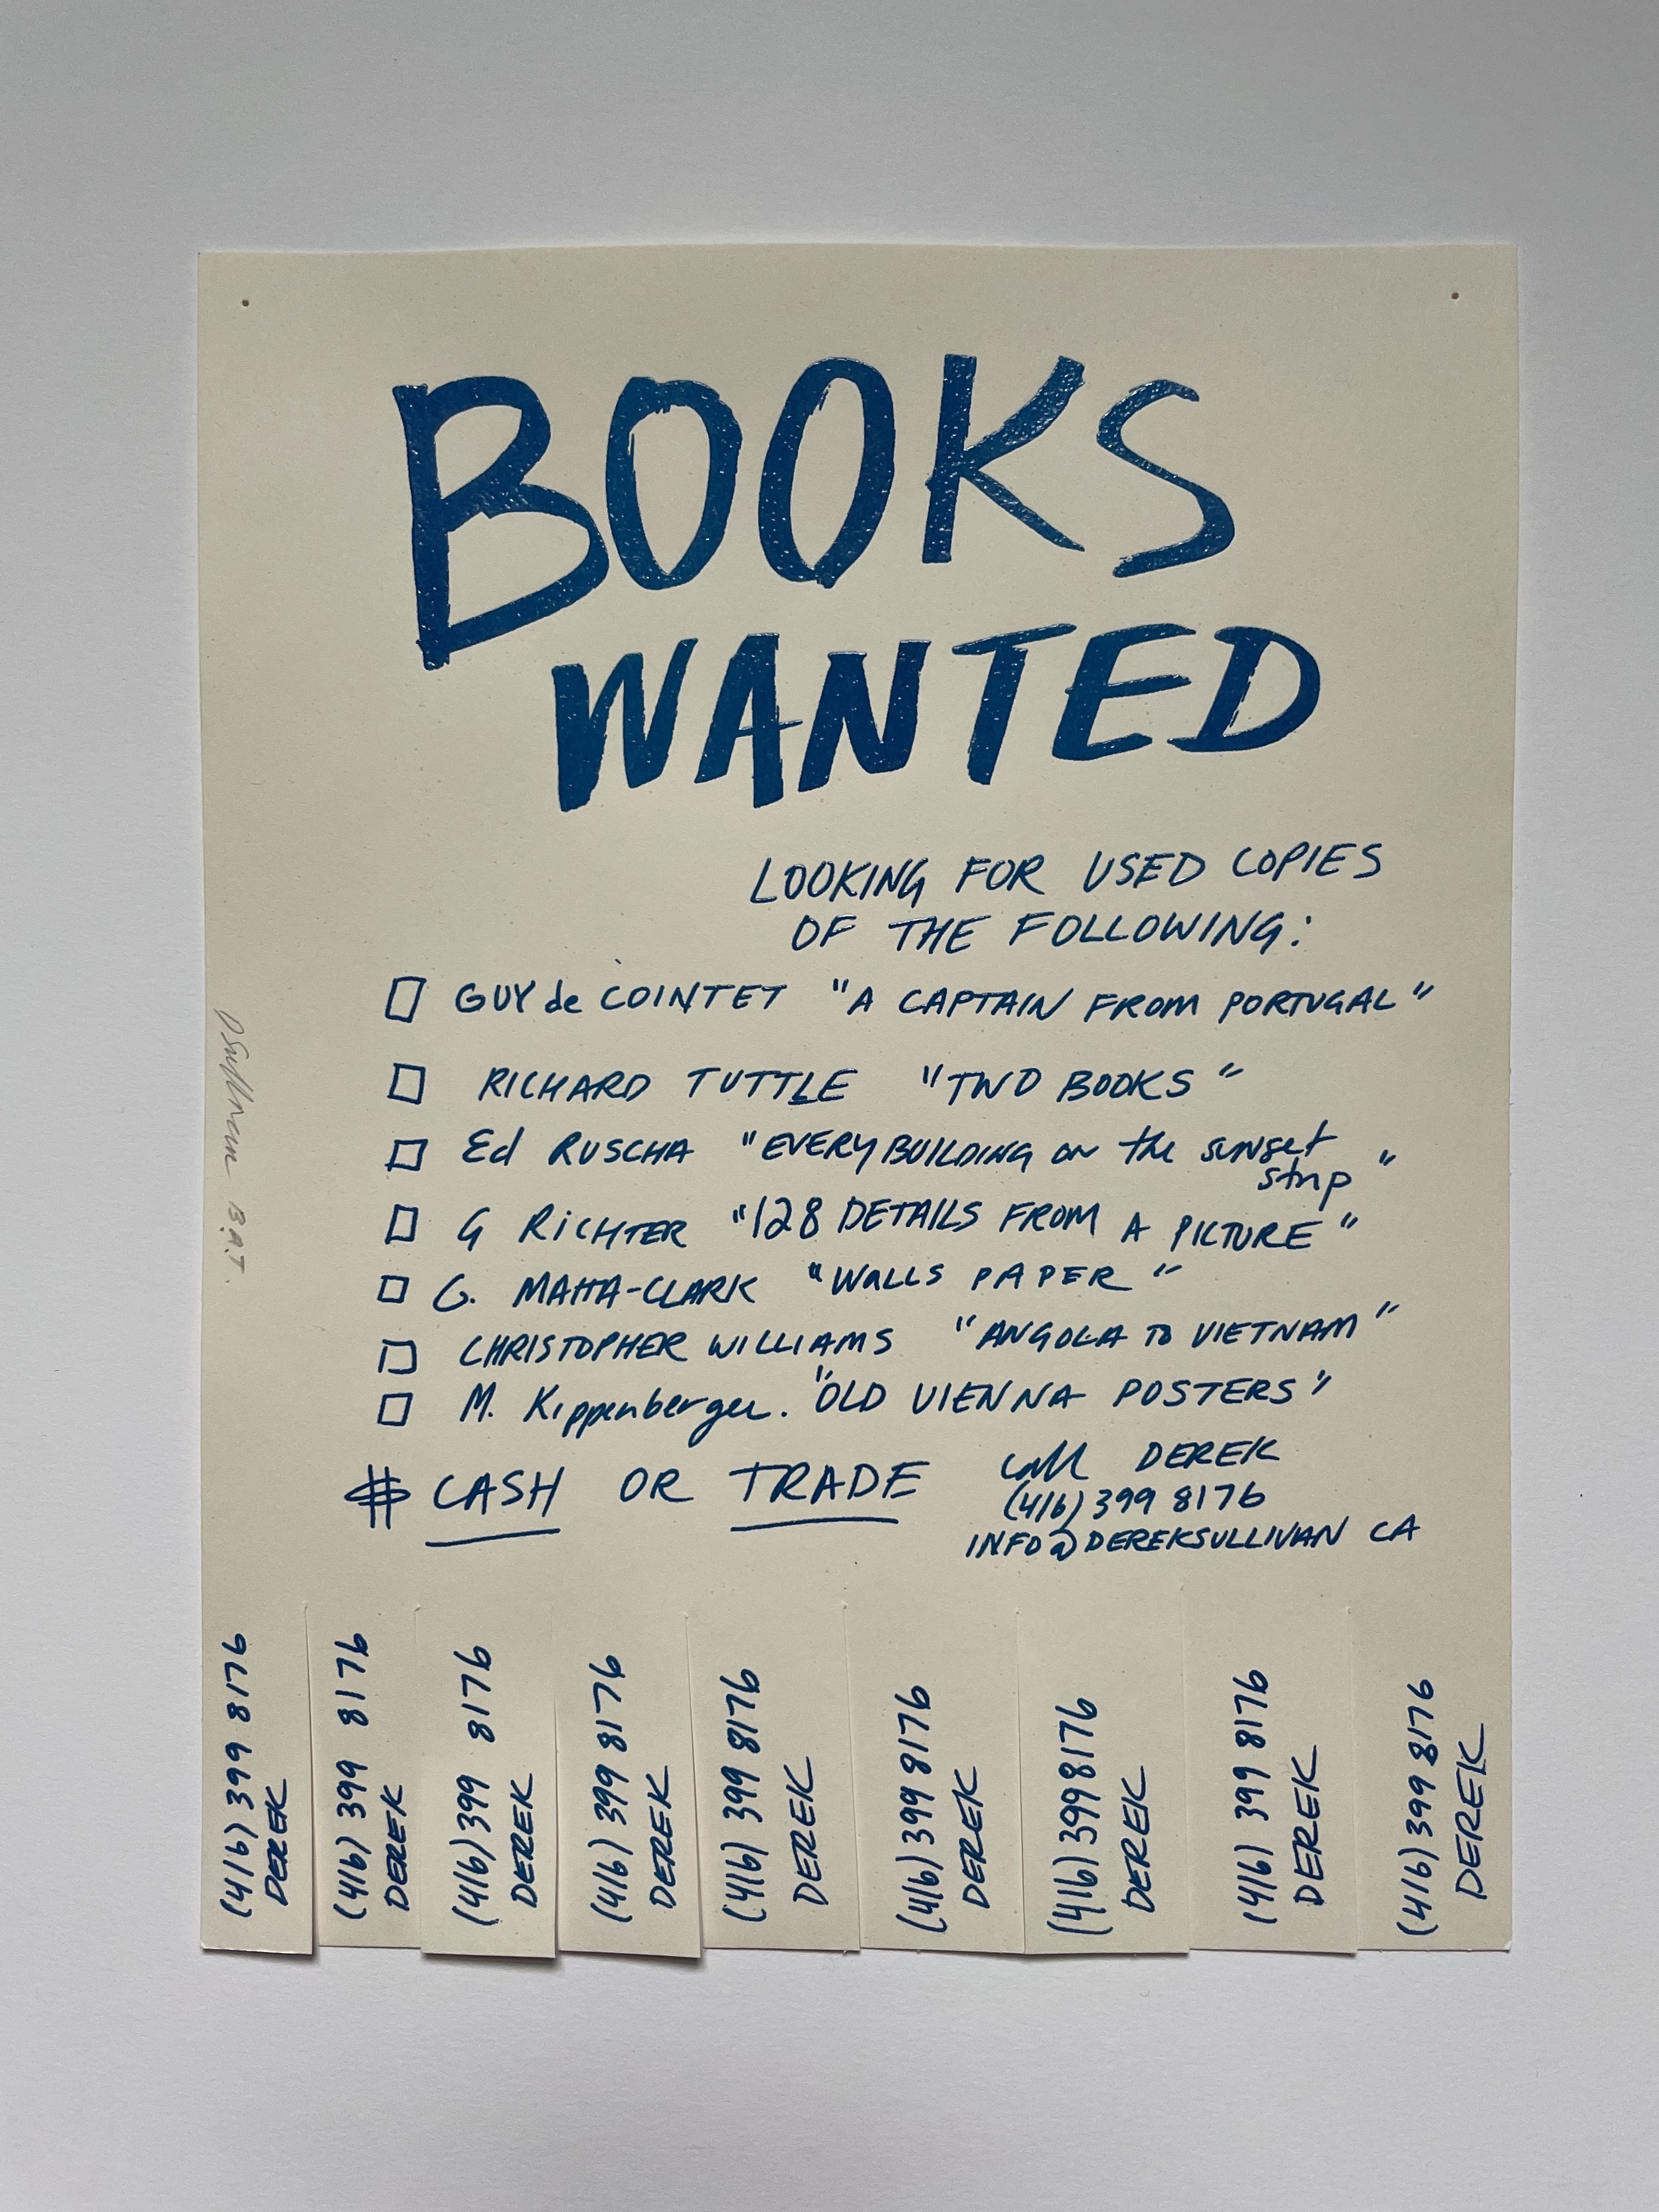 BOOKS
WANTED
LOOKING FOR USED COPIES
OF THE FOLLOWING:
GUY de COINTET "A CAPTAIN FROM PORTUGAL"
RICHARD TUTTLE "TWO BOOKS"
Ed RUSCHA "EVERY BUILDING on the sunset
strip"
G RICHTER "128 DETAILS FROM A PICTURE"
G. MATTA-CLARK "WALLS PAPER"
CHRISTOPHER WILLIAMS "ANGOLA TO VIETNAM"
M. Kippenberger. "OLD VIENNA POSTERS"
$ CASH OR TRADE
call DEREK
(416) 399 8176
INFO@DEREKSULLIVAN CA
DSullivan B.A.T.
(416) 399 8176
DEREK
(416) 399 8176
DEREK
(416) 399 8176
DEREK
(416) 399 8176
DEREK
(416) 399 8176
DEREK
(416) 399 8176
DEREK
(416) 399 8176
DEREK
(416) 399 8176
DEREK
(416) 399 8176
DEREK